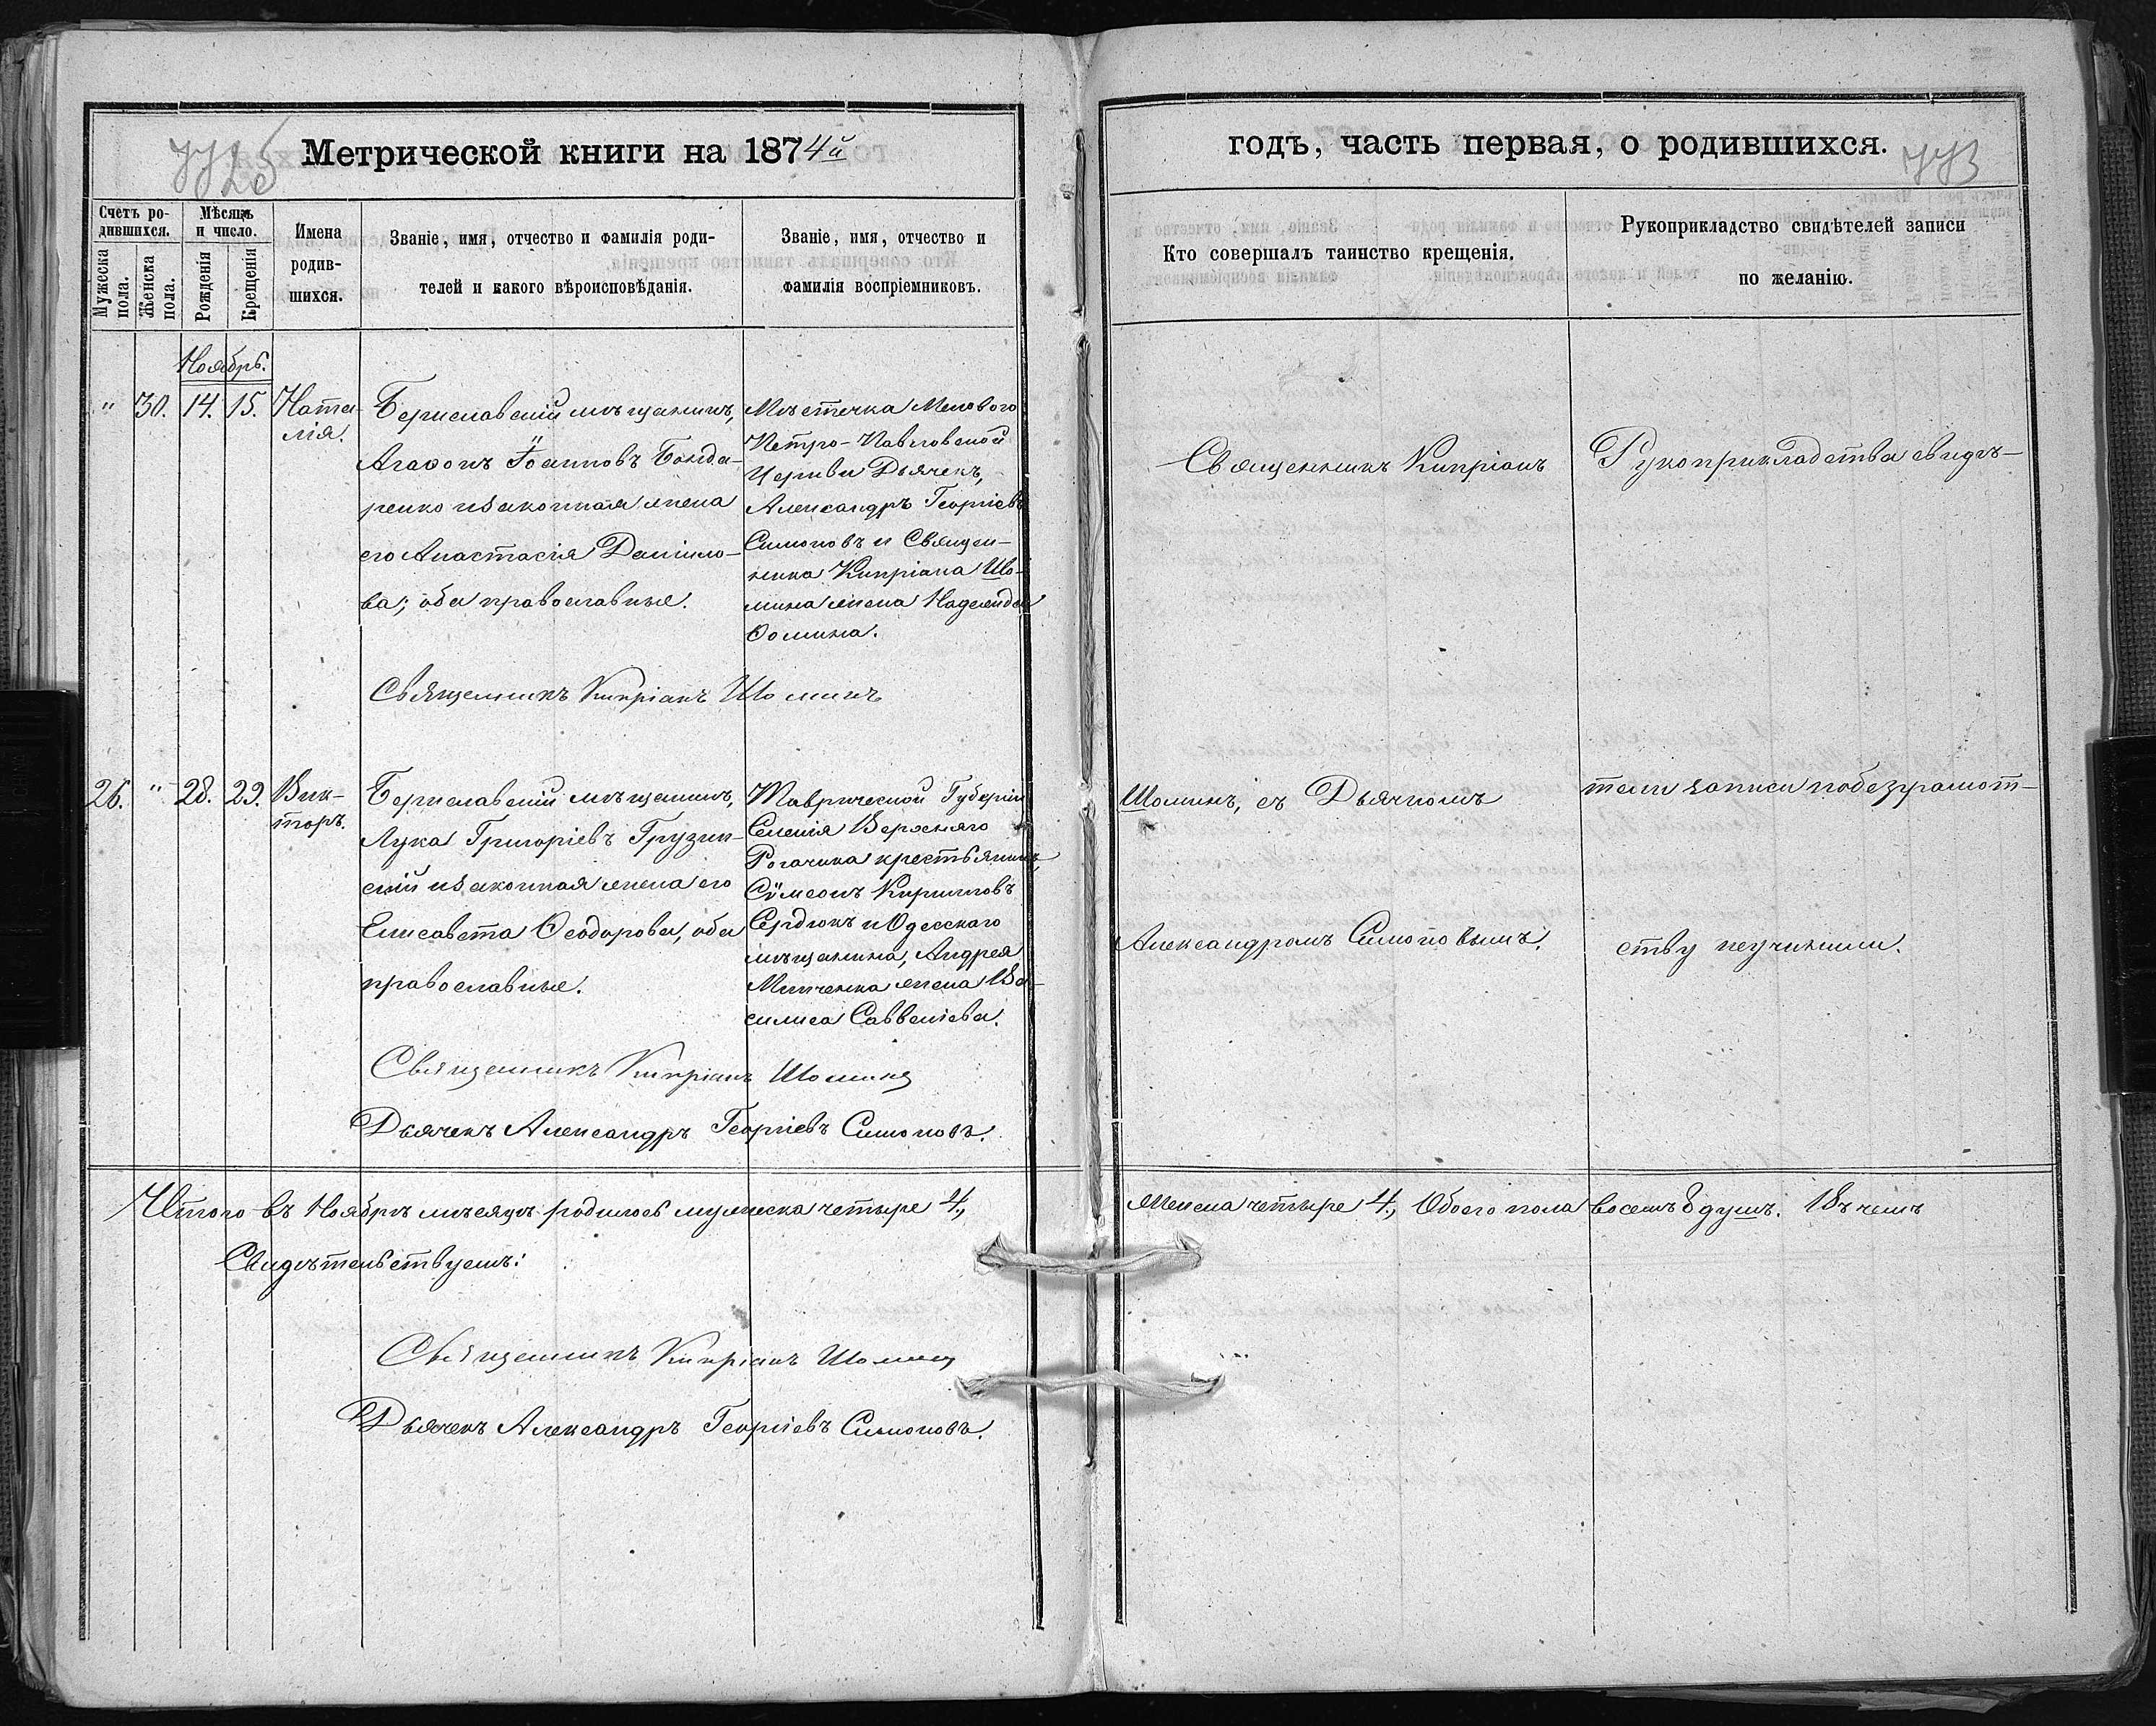 Метрической книги на 1874й
годъ, часть первая, о родившихся.
773
Счетъ ро-
дившихся.
Мужеска пола.
Женска пола.
Мѣсяцъ
и число.
Рожденія
Крещенія
Имена
родив-
шихся.
Званіе, имя, отчество и фамилія роди-
телей и какого вѣроисповѣданія.
Званіе, имя, отчество и
фамилія воспріемниковъ.
Кто совершалъ таинство крещенія.
Рукоприкладство свидѣтелей записи
по желанію.
Ноябрь.
" 30. 14. 15.
Ната-
лія.
Бериславскій мѣщанинъ,
Агаѳонъ Іоанновъ Бонда-
ренко и законная жена
его Анастасія Даніило-
ва; оба православные.
Мѣстечка Мелового
Петро-Павловской
Церкви Дьячекъ,
Александръ Георгіевъ
Симоновъ и Священ-
ника Кипріана Шо-
мина жена Надежда
Ѳомина.
Священникъ Кипріанъ
Рукоприкладства свидѣ-
Священникъ Кипріанъ Шоминъ
26. " 28. 29.
Вик-
торъ.
Бериславскій мѣщанинъ,
Лука Григоріевъ Грузин-
скій и законная жена его
Елисавета Ѳеодорова, оба
православные.
Таврической Губерніи
Селенія Верхняго
Рогачика крестьянинъ
Сѵмеонъ Кирилловъ
Сердюкъ и Одесскаго
мѣщанина, Андрея
жена Ва-
силиса Саввеліева.
Шоминъ, съ Дьячкомъ
Александромъ Симоновымъ.
тели записи по безграмот-
ству неучинили.
Священникъ Кипріанъ Шоминъ
Дьячекъ Александръ Георгіевъ Симоновъ.
Итого въ Ноябрѣ мѣсяцѣ родилось мужеска четыре 4,
Женска четыре 4, Обоего пола восемь 8 душъ. Въ чемъ
Свидѣтельствуемъ:
Священникъ Кипріанъ Шоминъ
Дьячекъ Александръ Георгіевъ Симоновъ.